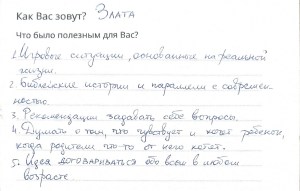 Как Вас зовут? Злата
Что было полезным для Вас?
1. Игровые ситуации, основанные на реальной
жизни.
2. Библейские истории и параллели с современ
ностью.
3. Рекомендации задавать себе вопросы.
4. Думать о том, что чувствует и хочет ребенок,
когда родители что-то от него хотят.
5. Идея договариваться обо всем в любом
возрасте.